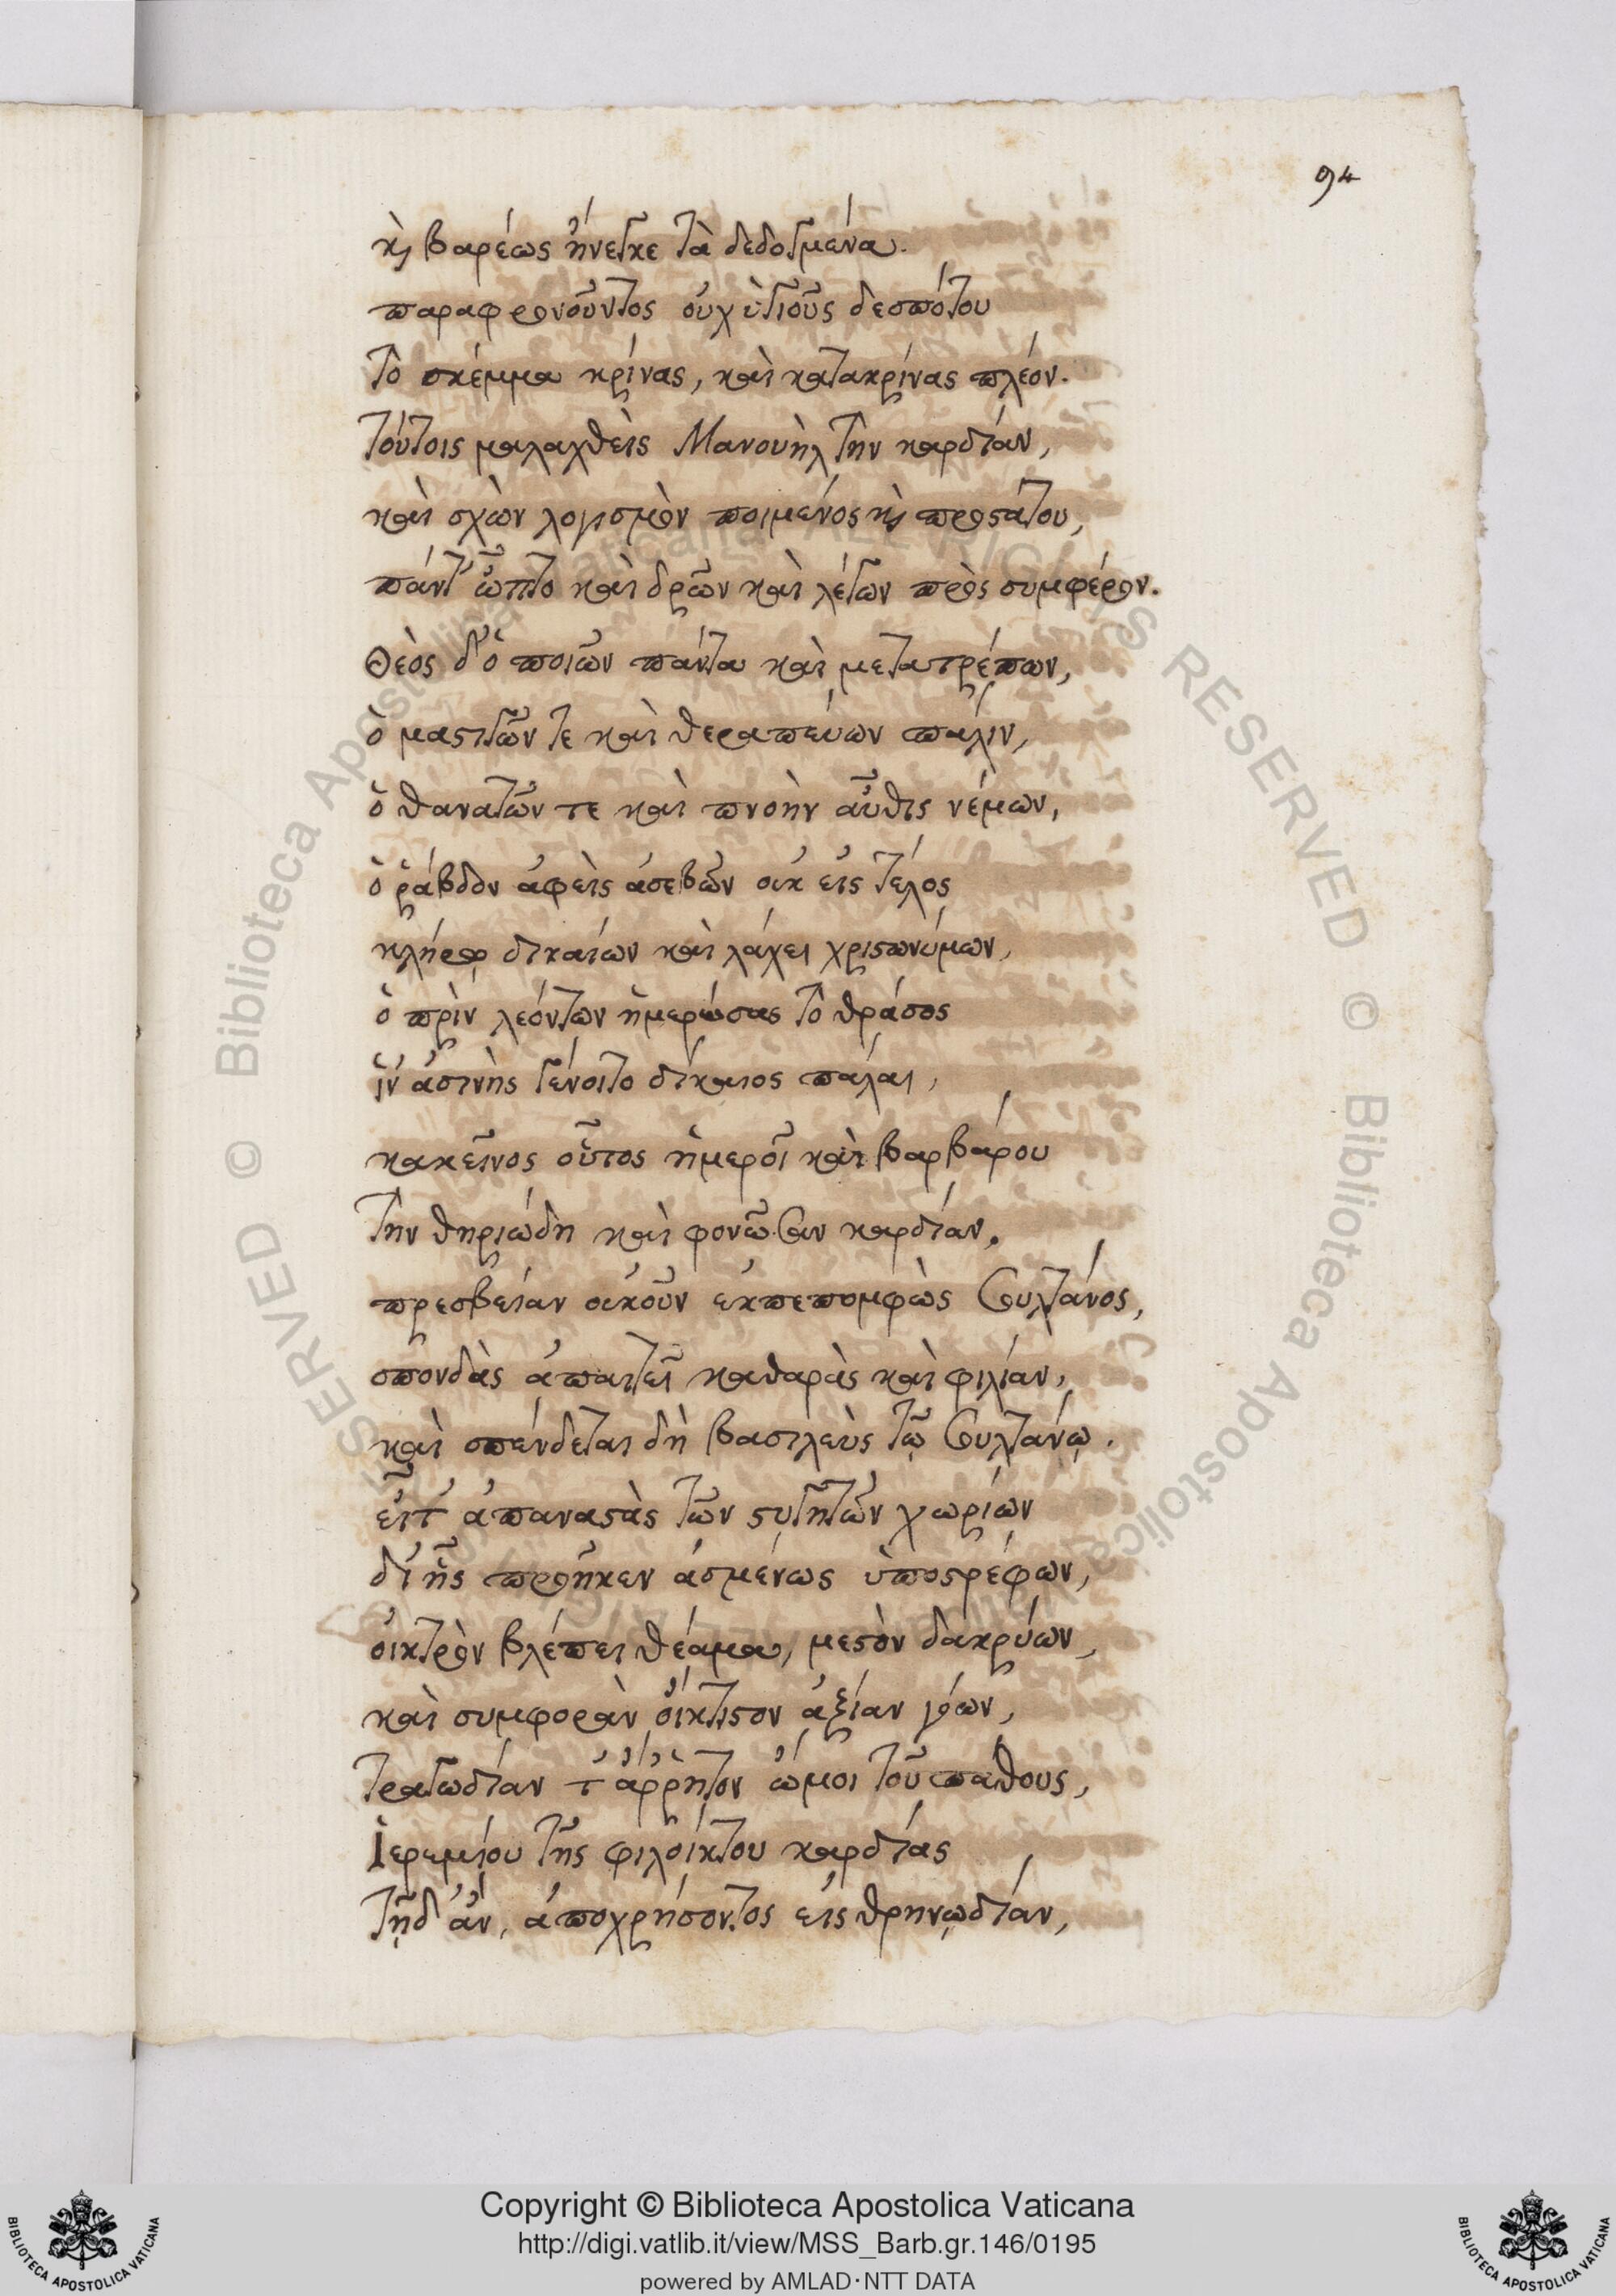 94
κ̀ βαρέως ἤνεγκε τὰ δεδογμένα.
παραφρονοῦντος οὐχ ὑγιοῦς δεσπότου
τὸ σκέμμα κρίνας, καὶ κατακρίνας πλέον.
τούτοις μαλαχθεὶς Μανουὴλ τὴν καρδίαν,
καὶ σχὼν λογισμὸν ποιμένος κ̀ προϛάτου,
πάντ' ὦπτο καὶ δρῶν καὶ λέγων πρὸς συμφέρον.
Θεὸς δ' ὁ ποιῶν πάντα καὶ μετατρέπων,
ὁ μαϛιγῶν τε καὶ θεραπεύων πάλιν,
ὁ θανατῶν τε καὶ πνοὴν αὖθις νέμων,
ὁ ῥάβδον ἀφεὶς ἀσεβῶν οὐκ εἰς τέλος
κλήρῳ δικαίων καὶ λάχει χριϛωνύμων,
ὁ πρὶν λεόντων ἡμερώσας τὸ θράσος
ἵν' ἀσινὴς γένοιτο δίκαιος πάλαι,
κακεῖνος οὗτος ἡμεροῖ καὶ βαρβάρου
τὴν θηριώδη καὶ φονῶσαν καρδίαν.
πρεσβείαν οὐκοῦν ἐκπεπομφὼς Συλτάνος,
σπονδὰς ἀπαιτεῖ καθαρὰς καὶ φιλίαν,
καὶ σπένδεται δὴ βασιλεὺς τῷ Συλτάνῳ.
εἶτ' ἀπαναϛὰς τῶν ϛυγητῶν χωρίων
δι' ἧς προῆκεν ἀσμένως ὑποϛρέφων,
οἰκτρὸν βλέπει θέαμα, μεϛὸν δακρύων,
καὶ συμφορὰν οἴκτιϛον ἀξίαν γόων,
τραγωδίαν τ' ἄῤῥητον ὤμοι τοῦ πάθους,
Ἱερεμίου τῆς φιλοίκτου καρδίας
τῇδ' ἂν, ἀποχρήσοντος εἰς θρηνῳδίαν,
Copyright © Biblioteca Apostolica Vaticana
http://digi.vatlib.it/view/MSS_Barb.gr.146/0195
powered by AMLAD·NTT DATA